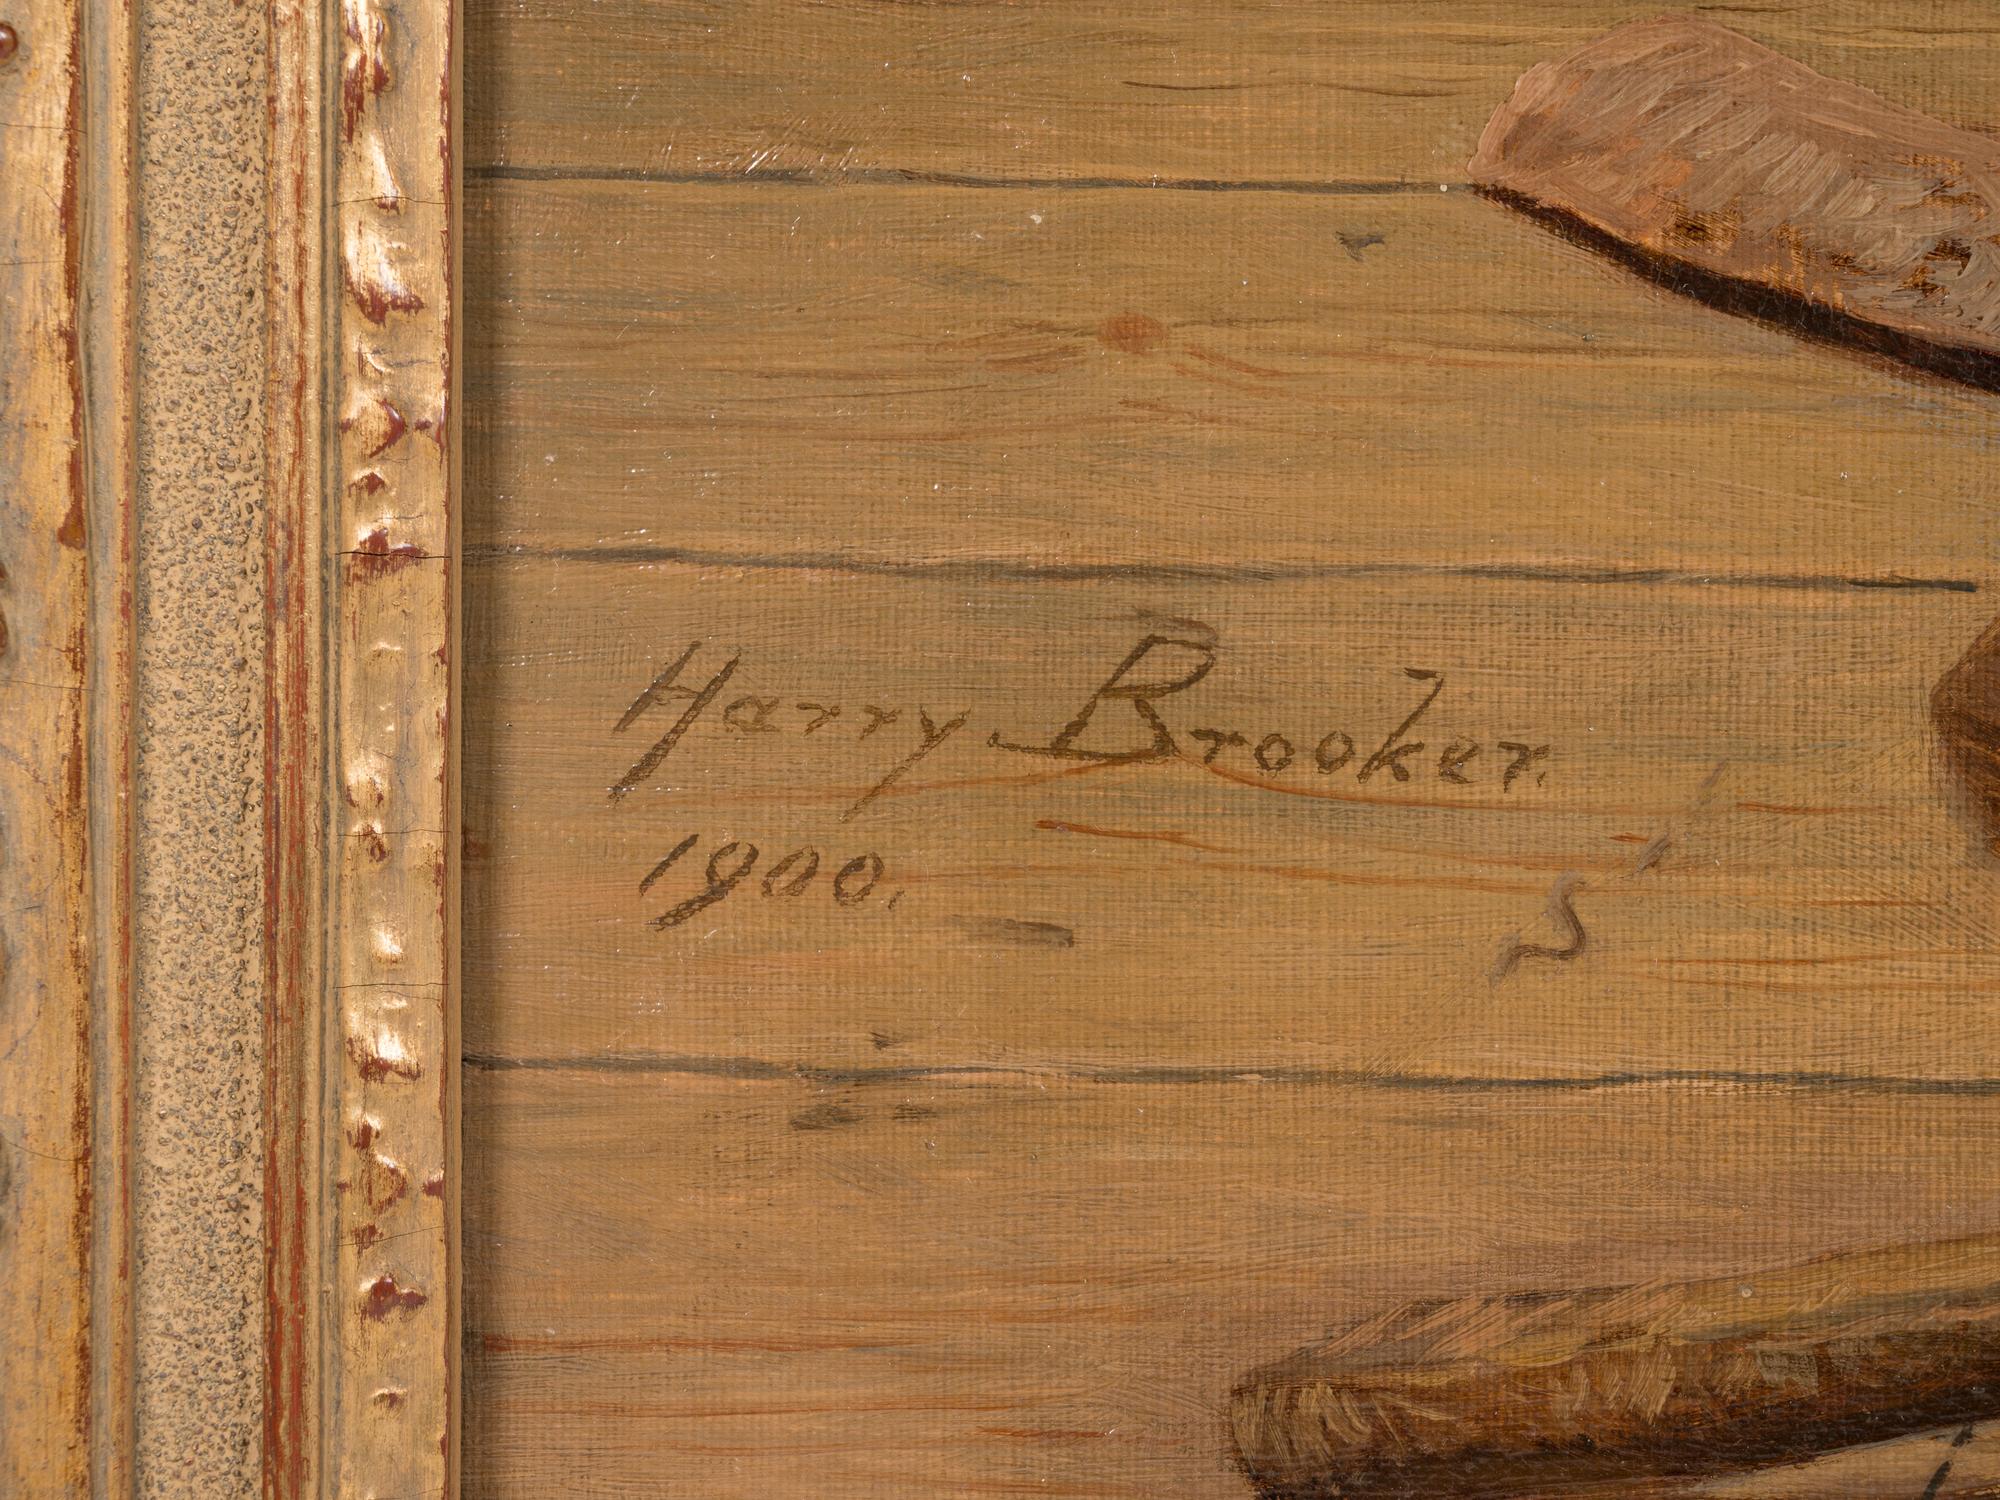 Harry Brooker.
1900.